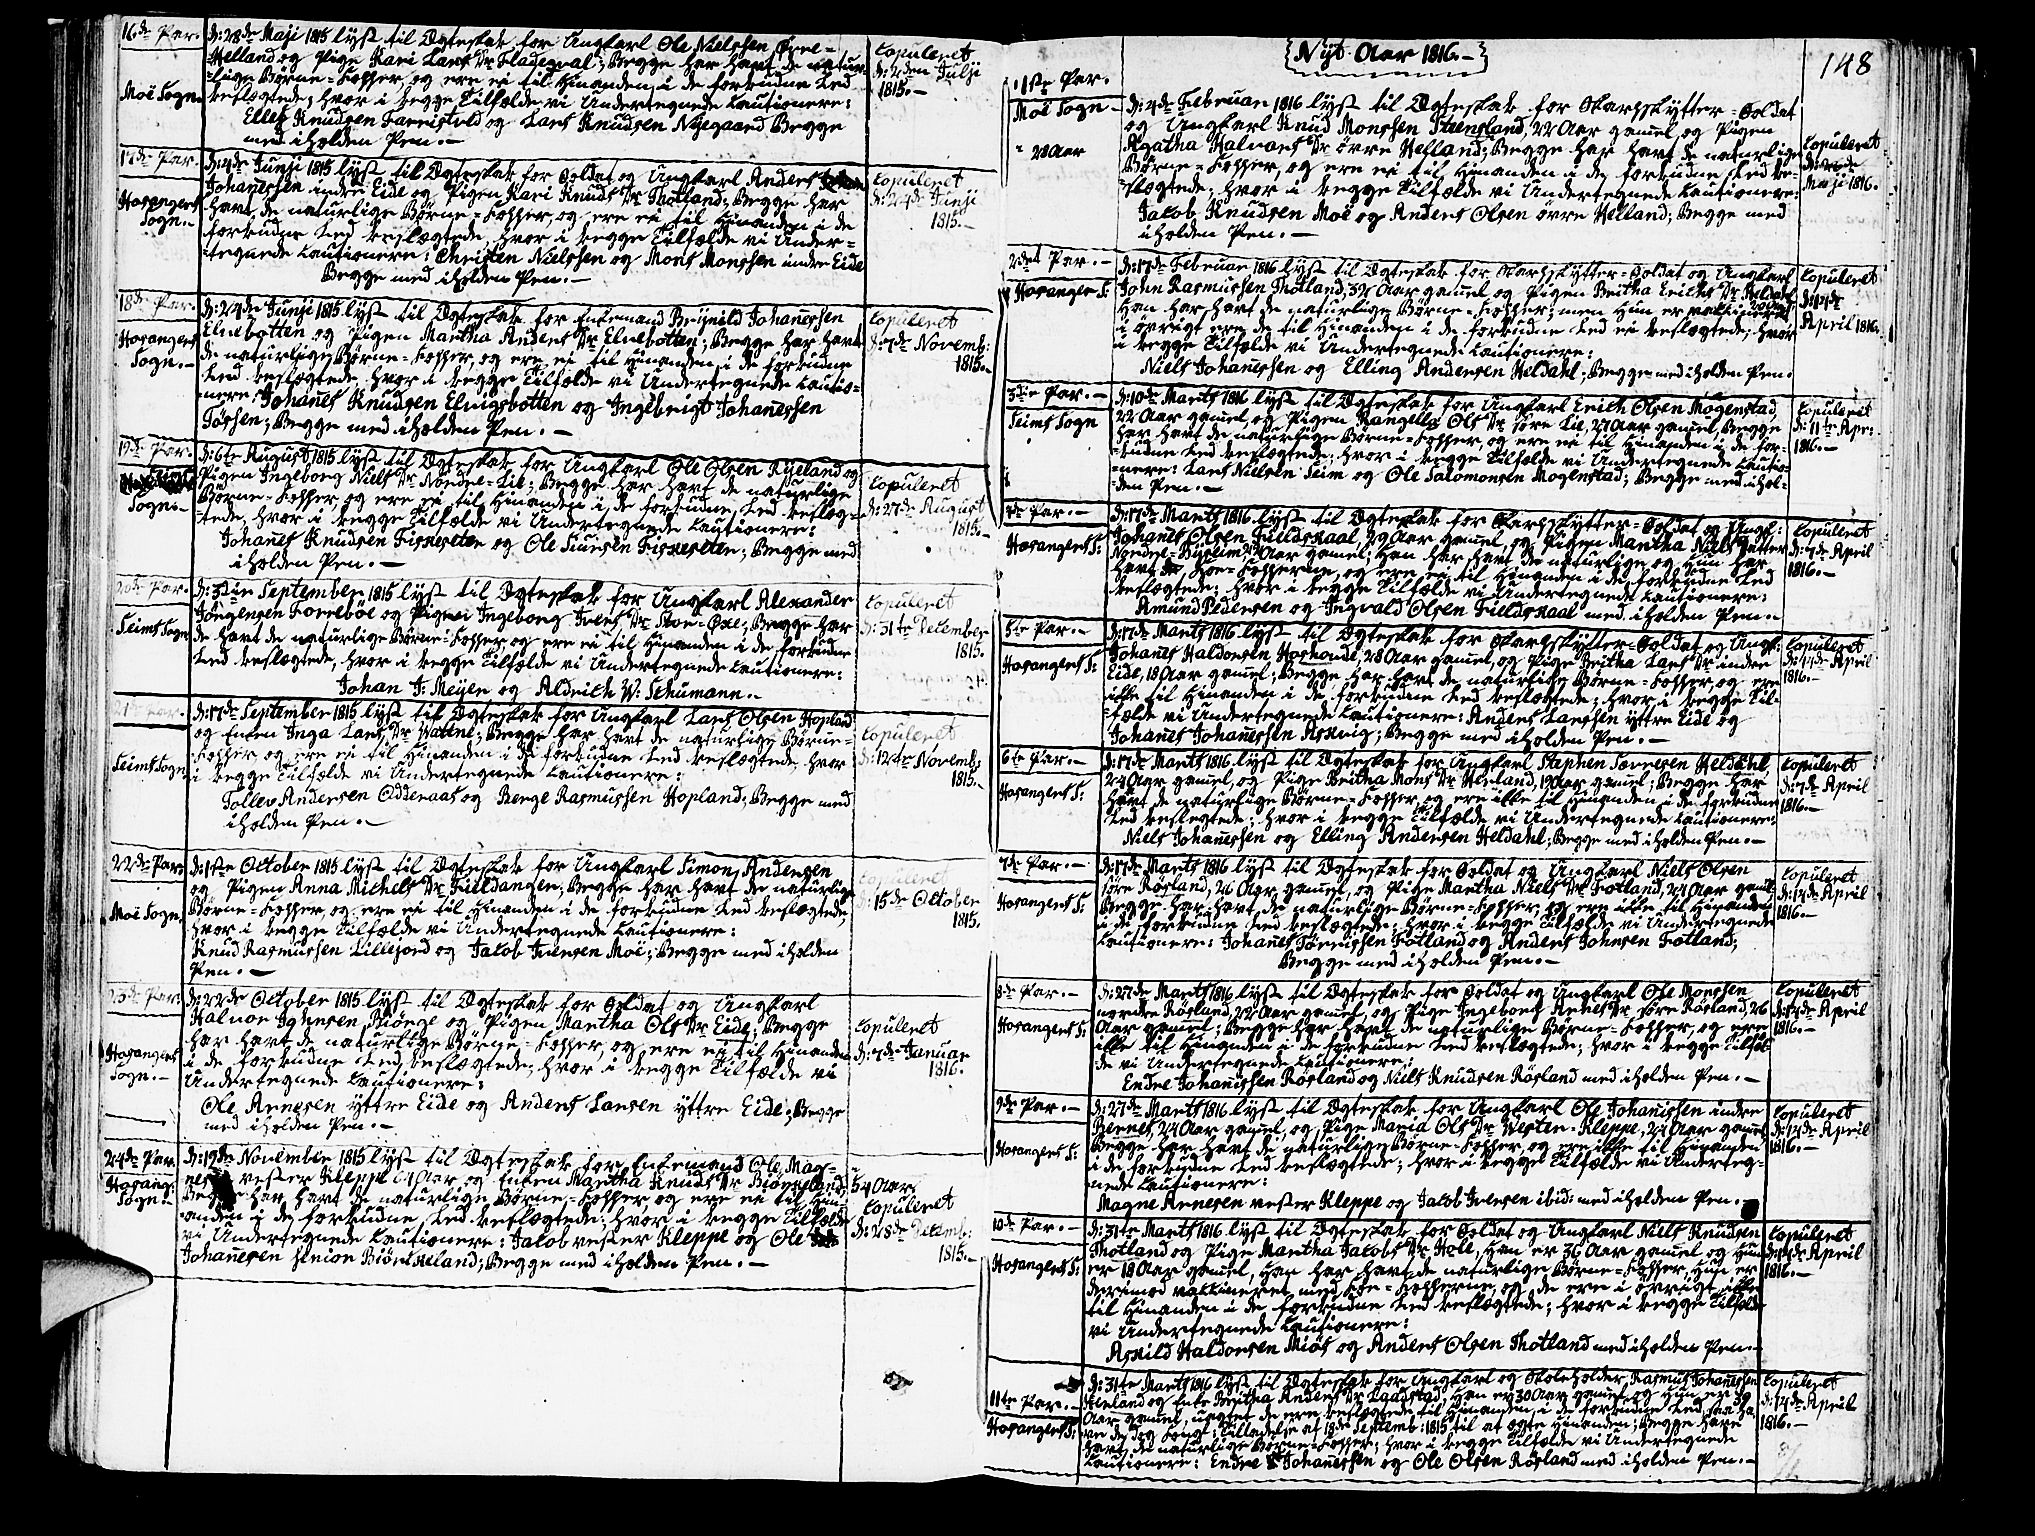 16de Par.
D: 28de Maji 1815 lyst til Ægteskab for Ungkarl Ole Nielssen Øvre-
Helland og Pige Kari Lars Dr Fladeqval; Begge har havt de natur-
-lige Børne-Kopper, og ere ei til Hinanden i de forbudne Led
Moe Sogn.
beslægtede; hvor i begge Tilfælde vi Undertegnede Cautionere:
Elleg Knudsen Farrestvld og Lars Knudsen Nyegaard Begge
med iholden Pen.—
Copuleret
d: 2den Julji
1815.—
17de Par.
D: 4de Junji 1815 lyst til Ægteskab for Soldat og Ungkarl Anders
Johanessen indre Eide og Pigen Kari Knuds Dr Thotland; Begge har
Hosangers
Sogn.—
havt de naturlige Børne-Kopper, og ere ei til Hinanden i de
forbudne Led beslægtede, hvor i begge Tilfælde vi Under-
-tegnede Cautionere: Christen Nielssen og Mons Monssen indre Eide
Begge med iholden Pen.—
Copuleret
d: 24de Junji
1815.—
18de Par.
D: 24de Junji 1815 lyst til Ægteskab for Enkemand Brynild Johanessen
Elnebotten og Pigen Martha Anders Dr Elnebotten; Begge har havt
Hosangers
Sogn.—
de naturlige Børne-Kopper, og ere ei til Hinanden i de forbudne
Led beslægtede, hvor i begge Tilfælde vi Undertegnede Cautio-
-nere: Johanes Knudsen Elnigsbotten og Ingebrigt Johanessen
Tossen; Begge med iholden Pen.—
Copuleret
d: 7de Novemb:
1815.—
19de Par.
D: 6te August 1815 lyst til Ægteskab for Ungkarl Ole Olsen Ryeland og
Pigen Ingeborg Niels Dr Nordre-Lie; Begge har havt de naturlige
Sogn.—
Børne-Kopper, og ere ei til Hinanden i de forbudne Led beslæg-
-tede, hvor i begge Tilfælde vi Undertegnede Cautionere:
Johanes Knudsen Fisxeseter og Ole Fisxeseter; Begge med
iholden Pen.—
Copuleret
d: 27de August
1815.—
20de Par.
D: 3die September 1815 lyst til Ægteskab for Ungkarl Alexander
Jørgensen Forrebøe og Pigen Ingeborg Ivers Dr Store-Oxe; Begge har
Seims Sogn
de havt de naturlige Børne-Kopper og ere ei til Hinanden i de forbudne
Led beslægtede, hvor i begge Tilfælde vi Undertegnede Cautionere:
Johan J: Meyer og Aldrich W: Schumann.—
Copuleret
d: 31te December
1815.
D: 17de September 1815 lyst til Ægteskab for Ungkarl Lars Olsen Hopland
og Enken Inga Lars Dr Watne; Begge har havt de naturlige Børne-
Seims Sogn
-Kopper og ere ei til Hinanden i de forbudne Led beslægtede, hvor
i begge Tilfælde vi Undertegnede Cautionere:
Tollev Andersen Odderaas og Berge Rasmussen Hopland; Begge med
iholden Pen.—
Copuleret
d: 12te Novemb:
1815.—
22de Par.
D: 1ste October 1815 lyst til Ægteskab for Ungkarl Simon Andersen
og Pigen Anna Michels Dr Fieldanger; Begge har havt de naturlige
Moe Sogn.
Børne-Kopper, og ere ei til Hinanden i de forbudne Led beslægtede,
hvor i begge Tilfælde vi Undertegnede Cautionere:
Knud Rasmussen Lillejord og Jacob Iversen Moe; Begge med iholden
Pen.—
Copuleret
d: 15de October
1815.
23de Par.
D: 22de October 1815 lyst til Ægteskab for Soldat og Ungkarl
Halvor Johnsen Biørge og Pigen Martha Ols Dr Eide; Begge
Hosangers
Sogn.—
har havt de naturlige Børne-Kopper, og ere ei til Hinanden
i de forbudne Led beslægtede; hvor i begge Tilfælde vi
Undertegnede Cautionere:
Ole Arnesen yttre Eide og Anders Larsen yttre Eide; Begge
med iholden Pen.—
Copuleret
d: 7de Januar
1816.
24de Par.
D: 19de November 1815 lyst til Ægteskab for Enkemand Ole Mag-
nesen vester Kleppe 64 Aar og Enken Martha Knuds Dr Biørneland,
Hosang:
Sogn.
54 Aar.
Begge har havt de naturlige Børne-Kopper og ere ei til Hin-
-anden i de forbudne Led beslægtede; hvor i begge Tilfælde
vi Undertegnede Cautionere: Jacob vester Kleppe og Ole
Johanesen Biørneland; Begge med iholden Pen.—
Copuleret
D: 28de Decemb:
1815.—
Nyt Aar 1816.—
148
11ste Par.
Moe Sogn—
22 Aar
D: 4de Februar 1816 lyst til Ægteskab for Skarpskytter-Soldat
og Ungkarl Knud Monssen Steensland, 22 Aar gamel, og Pigen
Agatha Halvors Dr øvre Helland; Begge har havt de naturlige
Børne-Kopper, og ere ei til Hinanden i de forbudne Led be-
-slægtede; hvor i begge Tilfælde vi Undertegnede Cautionere:
Jacob Knudsen Moe og Anders Olsen øvre Helland; Begge med
iholden Pen.—
Copuleret
Maji 1816.
2det Par.—
Hosanger S:
D: 17de Februar 1816 lyst til Ægteskab for Skarpskytter-Soldat og Ungkarl
John Rasmussen Thotland, 32 Aar gamel og Pigen Britha Erichs Dr Heldal
Han har havt de naturlige Børne-Kopper; men Hun er vaccineret
i øvrigt ere de til Hinanden i de forbudne Led ei beslægtede; hvor
i begge Tilfælde vi Undertegnede Cautionere:
Niels Johanessen og Elling Andersen Heldahl; Begge med iholden Pen.
Copuleret
April 1816.
3die Par.—
Seims Sogn
D: 10de Marts 1816 lyst til Ægteskab for Ungkarl Erich Olsen Mogenstad,
22 Aar gamel, og Pigen Rangella Ols Dr søre Lie, 27 Aar gamel, Begge
har havt de naturlige Børne-Kopper, og ere ei til Hinanden i de for-
-budne Led beslægtede; hvor i begge Tilfælde vi Undertegnede Cautio-
-nere: Lars Nielsen Seim og Ole Salomonsen Mogenstad; Begge med ihol-
-den Pen.—
Copuleret
D: 11te Apr:
1816.—
4de Par.—
Hosangers S:
D: 17de Marts 1816 lyst til Ægteskab for Skarpskytter-Soldat og Ungk:
Johanes Olsen Fieldskaal, 29 Aar gamel, og Pigen Martha Niels Datter
Nordre-Hyseim 22 Aar gamel; Han har havt de naturlige, og Hun har
havt Koe-Kopperne, og ere ei til Hinanden i de forbudne Led
beslægtede; hvor i begge Tilfælde vi Undertegnede Cautionere:
Amund Pedersen og Ingvald Olsen Fieldskaal med iholden Pen.—
Copuleret
D: 7de April
1816.—
5te Par.—
Hosangers S:
D: 17de Marts 1816 lyst til Ægteskab for Skarpskytter-Soldat og Ungk:
Johanes Haldorsen Hoshovde, 28 Aar gamel, og Pige Britha Lars Dr indre
Eide, 18 Aar gamel; Begge har havt de naturlige Børne-Kopper og ere
ikke til Hinanden i de forbudne Led beslægtede; hvor i begge Til-
-fælde vi Undertegnede Cautionere: Anders Larssen yttre Eide og
Johanes Johanessen Askvig; Begge med iholden Pen.—
Copuleret
D: 14de April
1816.—
6te Par.—
Hosangers S:
D: 17de Marts 1816 lyst til Ægteskab for Ungkarl Stephen Torresen Heldahl,
24 Aar gamel, og Pige Britha Mons Dr Herland, 19 Aar gamel; Begge har
havt de naturlige Børne-Kopper, og ere ikke til Hinanden i de forbudne
Led beslægtede; hvor i begge Tilfælde vi Undertegnede Cautionere:
Niels Johanessen og Elling Andersen Heldahl; Begge med iholden Pen.—
Copuleret
D: 7de April
1816.—
7de Par.—
Hosangers S:
D: 17de Marts 1816 lyst til Ægteskab for Soldat og Ungkarl Niels Olsen
søre Røsland, 26 Aar gamel, og Pige Martha Niels Dr Fotland, 24 Aar gamel
Begge har havt de naturlige Børne-Kopper, og ere ikke til Hinanden
i de forbudne Led beslægtede; hvor i begge Tilfælde vi Undertegnede
Cautionere: Johanes Fotland og Anders Johnsen Fotland;
Begge med iholden Pen.—
Copuleret
D: 14de April
1816.—
8de Par.—
Hosangers S:
D: 27de Marts 1816 lyst til Ægteskab for Soldat og Ungkarl Ole Monssen
nordre Røsland, 22 Aar gamel, og Pige Ingeborg Arnes Dr søre Røsland, 26
Aar gamel; Begge har havt de naturlige Børne-Kopper, og ere
ikke til Hinanden i de forbudne Led beslægtede; hvor i begge Tilfæl-
de vi Undertegnede Cautionere:
Endre Johanessen Røsland og Niels Knudsen Røsland med iholden Pen.—
Copuleret
D: 14de April
1816.—
9de Par.—
Hosangers S:
D: 27de Marts 1816 lyst til Ægteskab for Ungkarl Ole Johanissen indre
Bernes, 24 Aar gamel, og Pige Maria Ols Dr Wester-Kleppe, 24 Aar gamel
Begge har havt de naturlige Børne-Kopper og ere ikke til Hinanden
i de forbudne Led beslægtede; hvor i begge Tilfælde vi Underteg-
-nede Cautionere:
Magne Arnesen vester Kleppe og Jacob Iversen ibid: med iholden Pen.—
Copuleret
D: 14de April
1816.—
10de Par.—
Hosangers S:
D: 31te Marts 1816 lyst til Ægteskab for Soldat og Ungkarl Niels Knudsen
Thotland og Pige Martha Jacobs Dr Hole, Han er 36 Aar gamel og Hun
er 18 Aar gamel, Han har havt de naturlige Børne-Kopper, Hun er
derimod vaccineret med Koe-Kopperne, og de ere i øvrigt ikke
til Hinanden i de forbudne Led beslægtede; hvor i begge Tilfælde
vi Undertegnede Cautionere:
Askild Haldorsen Miøs og Anders Olsen Thotland med iholden Pen.—
Copuleret
D: 14de April
1816.—
11te Par.—
Hosangers S:
D: 31te Marts 1816 lyst til Ægteskab for Ungkarl og Skoleholder, Rasmus Johanessen
Henland og Enke Britha Anders Dr Raadstad, Han er 30 Aar gamel og Hun er 39
Aar gamel, uagtet de ere beslægtede til Hinanden i de forbudne Led, saa ha-
ve de dog Kongl: Tilladelse af 18de Septemb: 1815 til at ægte Hinanden; Begge have
havt de naturlige Børne-Kopper; hvor i begge Tilfælde vi Undertegnede
Cautionere: Endre Johanessen og Ole Olsen Røsland med iholden Pen.—
Copuleret
D: 14de April
1816.—